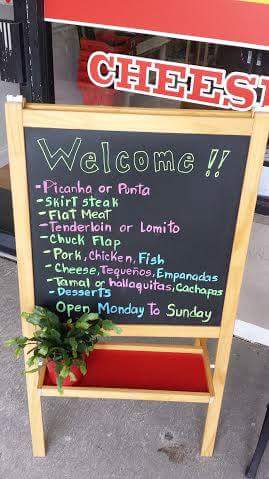 CHEES
Welcome!!
- Picanha or Punta
- Skirt steak
- Flat Meat
- Tenderloin or Lomito
- Chuck Flap
- Pork, Chicken, Fish
- Cheese, Tequeños, Empanadas
- Tamal or hallaquitas, Cachapas
- Desserts
Open Monday to Sunday